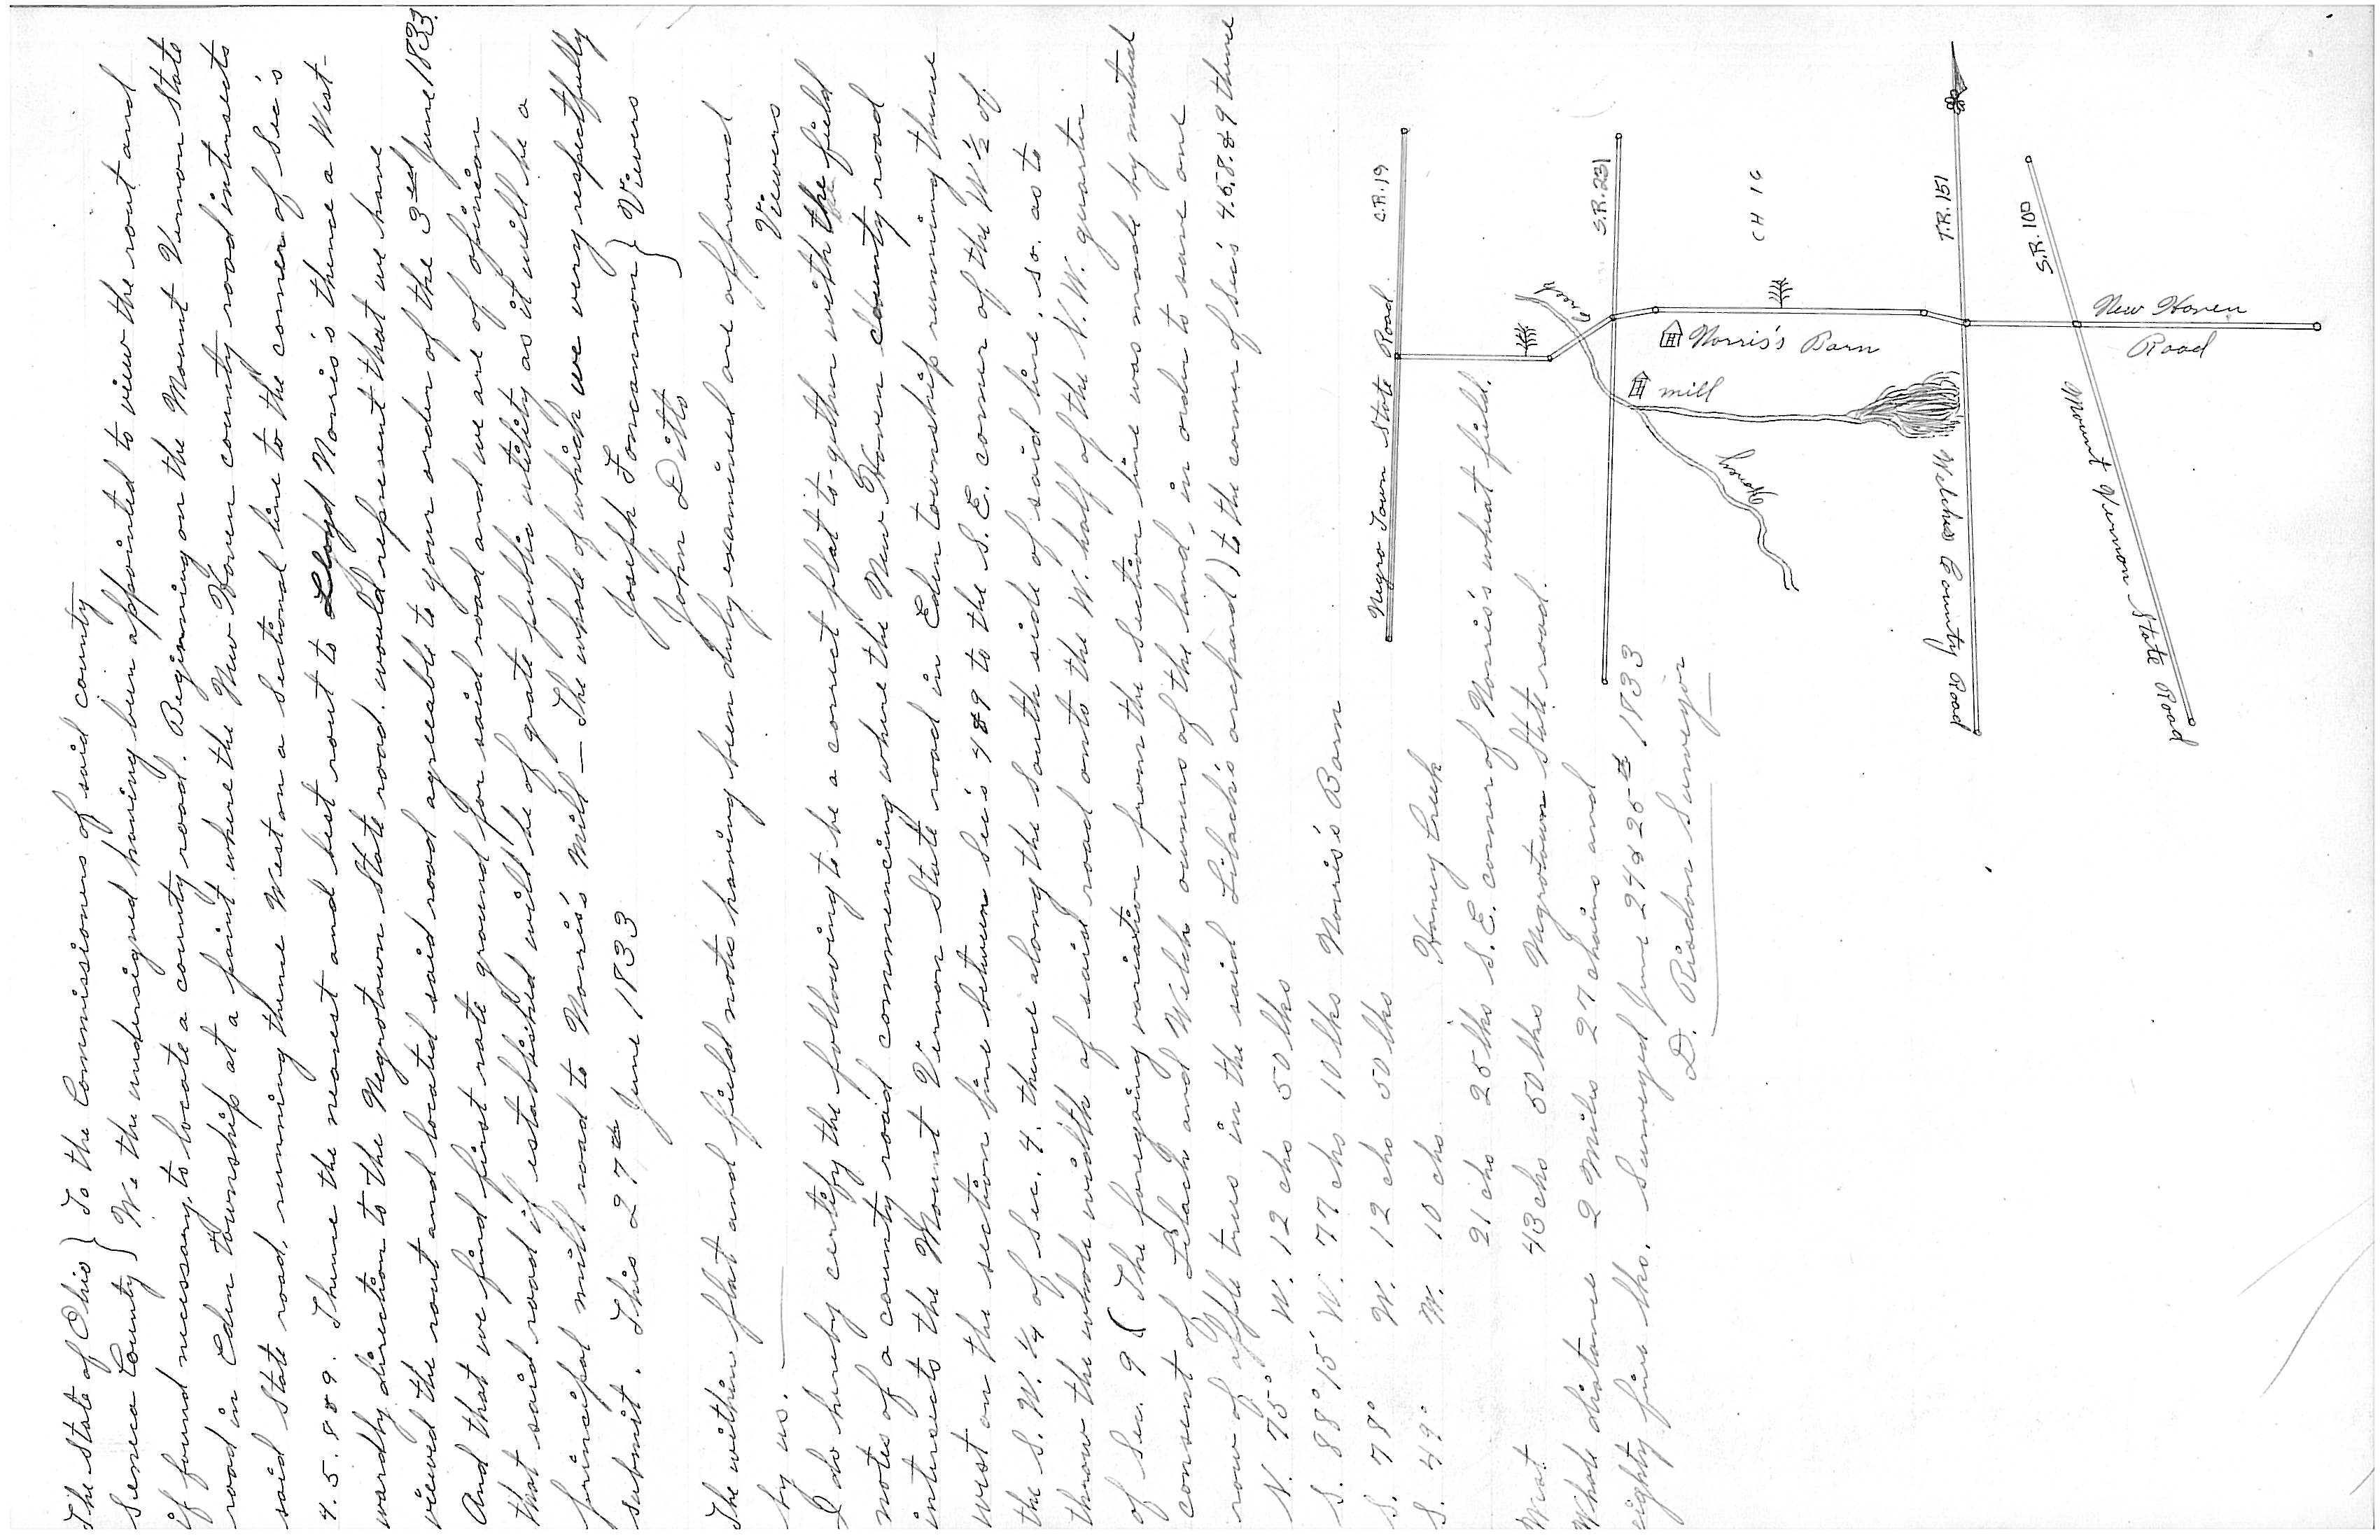 The State of Ohio } To the Commissioners of said county
Seneca County } We the undersigned having been appointed to view the rout and
if found necessary, to locate a county road. Beginning on the Mount Vernon State
road in Eden township at a point where the New Haven county road intersects
said State road, running thence West on a sectional line to the corner of Sec's
4.5.8&9. Thence the nearest and best rout to Lloyd Norris's thence a West-
wardly direction to the Negrotown State road. would represent that we have
viewed the rout and located said road agreeable to your order of the 3rd June 1833.
And that we find first rate ground for said road and we are of opinion
that said road if established will be of grate public utility as it will be a
principal mill road to Norris's Mill — The whole of which we very respectfully
submit. This 27th June 1833
Joseph Foncannon } Viewers
John Ditto
The within plat and field notes having been duly examined are approved
by us. — Viewers
I do hereby certify the following to be a correct plat to-gether with the field
notes of a county road commencing where the New Haven county road
intersects the Mount Vernon State road in Eden township running thence
west on the section line between Sec's 4&9 to the S.E. corner of the W½ of
the S.W.¼ of Sec. 4. thence along the South side of said line, so as to
throw the whole width of said road onto the W. half of the N.W. quarter
of Sec. 9 (The foregoing variation from the Section line was made by mutual
consent of and Welch owners of the land, in order to save one
row of apple trees in the said orchard) to the corner of Sec's 4.5.8.&9 thence
N. 75° W. 12 chs 50 lks
S. 88° 15' W. 77 chs 10 lks Norris's Barn
S. 78° W. 12 chs 50 lks
S. 49° W. 10 chs. Honey Creek
21 chs 25 lks S.E. corner of Norris's wheat field.
West 43 chs 50 lks Negrotown State road.
Whole distance 2 Miles 27 chains and
eighty five lks. Surveyed June 24&25th 1833
D. Risdon Surveyor
Negro Town State Road C.R.19
S.R.231
Creek
Norris's Barn
CH 16
mill
Honey
T.R.151
Welches County Road
S.R. 100
Mount Vernon State Road
New Haven
Road